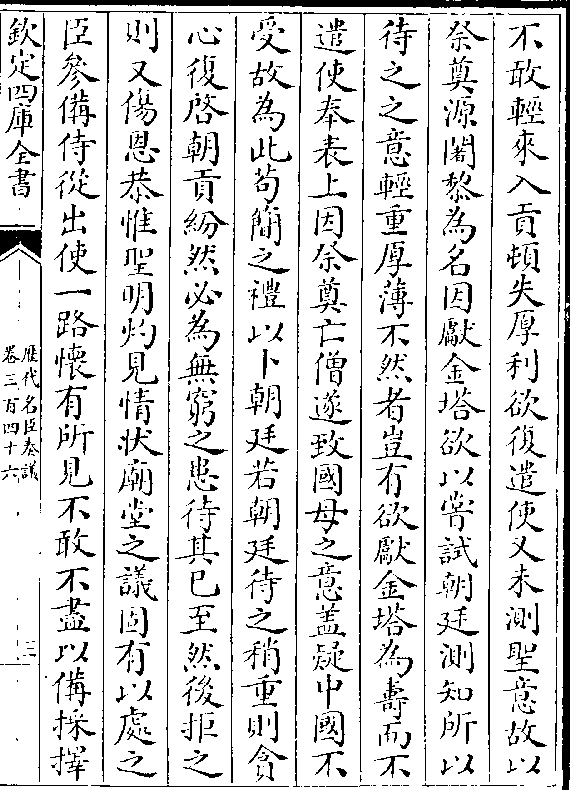 不敢輕來入貢頓失厚利欲復遣使又未測聖意故以
祭奠源闍黎為名因獻金塔欲以嘗試朝廷測知所以
待之之意輕重厚薄不然者豈有欲獻金塔為壽而不
遣使奉表上因祭奠亡僧遂致國母之意蓋疑中國不
受故為此茍簡之禮以卜朝廷若朝廷待之稍重則貪
心復啓朝貢紛然必為無窮之患待其已至然後拒之
則又傷恩恭惟聖明灼見情狀廟堂之議固有以處之
臣參備侍從出使一路懷有所見不敢不盡以備採擇
欽定四庫全書
歷代名臣奏議
卷三百四十六
三